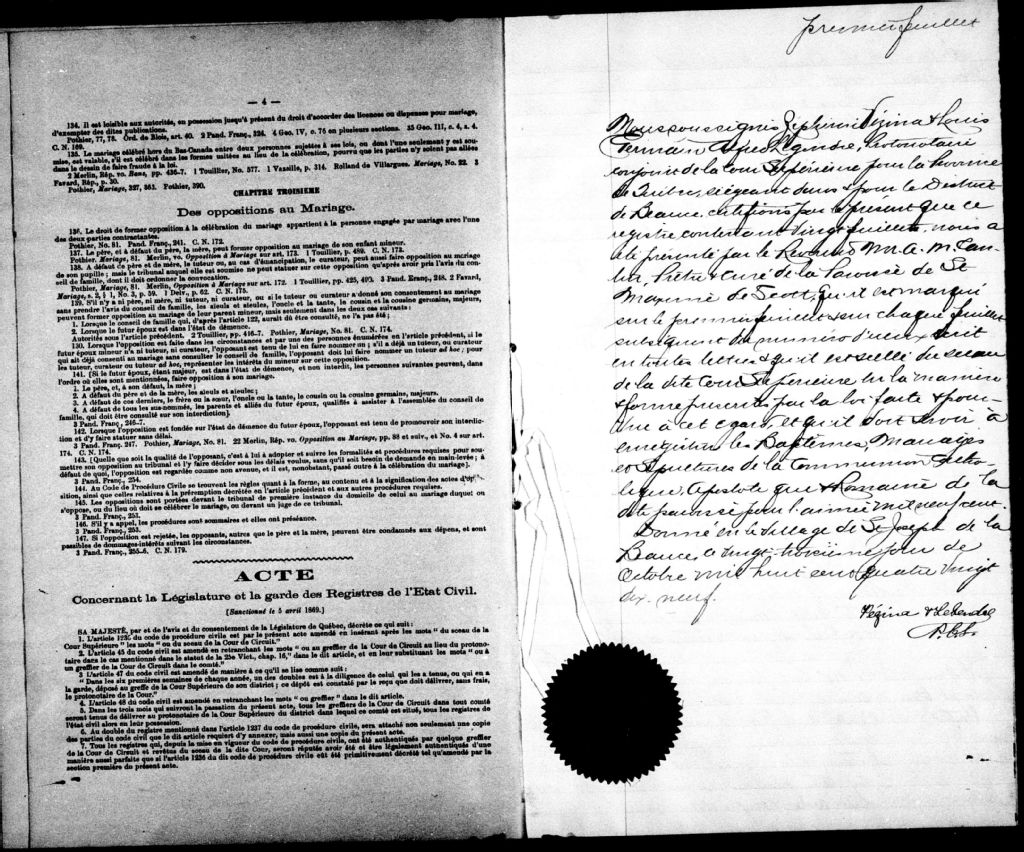 — 4 —
134. Il est loisible aux autorités, en possession jusqu'à présent du droit d'accorder des licences ou dispenses pour mariage,
d'exempter des dites publications.
Pothier, 77, 78. Ord. de Blois, art. 40. 2 Pand. Franç., 324. 4 Geo. IV, c. 76 en plusieurs sections. 35 Geo. III, c. 4, s. 4.
C. N. 169.
135. Le mariage célébré hors du Bas-Canada entre deux personnes sujettes à ses lois, ou dont l'une seulement y est sou-
mise, est valable, s'il est célébré dans les formes usitées au lieu de la célébration, pourvu que les parties n'y soient pas allées
dans le dessin de faire fraude à la loi.
2 Merlin, Rép. vo. Bans, pp. 436-7. 1 Touillier, No. 577. 1 Vazeille, p. 314. Rolland de Villargues. Mariage, No. 22. 3
Favard, Rép., p. 30.
Pothier, Mariage, 327, 363. Pothier, 390.
CHAPITRE TROISIEME
Des oppositions au Mariage.
136. Le droit de former opposition à la célébration du mariage appartient à la personne engagée par mariage avec l'une
des deux parties contractantes.
Pothier, No. 81. Pand. Franç., 241. C. N. 172.
137. Le père, et à défaut du père, la mère, peut former opposition au mariage de son enfant mineur.
Pothier, Mariage, 81. Merlin, vo. Opposition à Mariage sur art. 173. 1 Touillier, p. 489. C. N. 173.
138. A défaut de père et de mère, le tuteur ou, au cas d'émancipation, le curateur, peut aussi faire opposition au mariage
de son pupille; mais le tribunal auquel elle est soumise ne peut statuer sur cette opposition qu'après avoir pris l'avis du con-
seil de famille, dont il doit ordonner la convocation.
Pothier, Mariage, 81. Merlin, Opposition à Mariage sur art. 172. 1 Touillier, pp. 425, 490. 3 Pand. Franç., 248. 2 Favard,
Mariage, s. 2, § 1, No. 3, p. 59. 1 Delv., p. 62. C. N. 175.
139. S'il n'y a ni père, ni mère, ni tuteur, ni curateur, ou si le tuteur ou curateur a donné son consentement au mariage
sans prendre l'avis du conseil de famille, les aïeuls et aïeules, l'oncle et la tante, le cousin et la cousine germains, majeurs,
peuvent former opposition au mariage de leur parent mineur, mais seulement dans les deux cas suivants:
1. Lorsque le conseil de famille qui, d'après l'article 122, aurait dû être consulté, ne l'a pas été;
2. Lorsque le futur époux est dans l'état de démence.
Autorités sous l'article précédent. 2 Touillier, pp. 416-7. Pothier, Mariage, No. 81. C. N. 174.
130. Lorsque l'opposition est faite dans les circonstances et par une des personnes énumérées en l'article précédent, si le
futur époux mineur n'a ni tuteur, ni curateur, l'opposant est tenu de lui en faire nommer un; s'il a déjà un tuteur, ou curateur
qui ait déjà consenti au mariage sans consulter le conseil de famille, l'opposant doit lui faire nommer un tuteur ad hoc; pour
les tuteur, curateur ou tuteur ad hoc, représenter les intérêts du mineur sur cette opposition.
141. [Si le futur époux, étant majeur, est dans l'état de démence, et non interdit, les personnes suivantes peuvent, dans
l'ordre où elles sont mentionnées, faire opposition à son mariage.
1. Le père, et à son défaut, la mère;
2. A défaut du père et de la mère, les aïeuls et aïeules;
3. A défaut de ces derniers, le frère ou la sœur, l'oncle ou la tante, le cousin ou la cousine germains, majeurs.
4. A défaut de tous les sus-nommés, les parents et alliés du futur époux, qualifiés à assister à l'assemblée du conseil de
famille, qui doit être consulté sur son interdiction].
3 Pand. Franç., 246-7.
142. Lorsque l'opposition est fondée sur l'état de démence du futur époux, l'opposant est tenu de promouvoir son interdic-
tion et d'y faire statuer sans délai.
3 Pand. Franç. 247. Pothier, Mariage, No. 81. 22 Merlin, Rép. vo. Opposition au Mariage, pp. 88 et suiv., et No. 4 sur art.
174. C. N. 174.
143. [Quelle que soit la qualité de l'opposant, c'est à lui à adopter et suivre les formalités et procédures requises pour sou-
mettre son opposition au tribunal et l'y faire décider sous les délais voulus, sans qu'il soit besoin de demande en main-levée; à
défaut de quoi, l'opposition est regardée comme non avenue, et il est, nonobstant, passé outre à la célébration du mariage].
3 Pand. Franç., 254.
144. Au Code de Procédure Civile se trouvent les règles quant à la forme, au contenu et à la signification des actes d'oppo-
sition, ainsi que celles relatives à la préremption décrétée en l'article précédent et aux autres procédures requises.
145. Les oppositions sont portées devant le tribunal de première instance du domicile de celui au mariage duquel on
s'oppose, ou du lieu où doit se célébrer le mariage, ou devant un juge de ce tribunal.
3 Pand. Franç., 253.
146. S'il y a appel, les procédures sont sommaires et elles ont préséance.
3 Pand. Franç., 253.
147. Si l'opposition est rejetée, les opposants, autres que le père et la mère, peuvent être condamnés aux dépens, et sont
passibles de dommages-intérêts suivant les circonstances.
3 Pand. Franç., 255-6. C. N. 179.
ACTE
Concernant la Législature et la garde des Registres de l'Etat Civil.
[Sanctionné le 5 avril 1869.]
SA MAJESTÉ, par et de l'avis et du consentement de la Législature de Québec, décrète ce qui suit:
1. L'article 1236 du code de procédure civile est par le présent acte amendé en insérant après les mots "du sceau de la
Cour Supérieure" les mots "ou du sceau de la Cour de Circuit."
2. L'article 45 du code civil est amendé en retranchant les mots "ou au greffier de la Cour de Circuit au lieu du protono-
taire dans le cas mentionné dans le statut de la 25e Vict., chap. 16," dans le dit article, et en leur substituant les mots "ou à
un greffier de la Cour de Circuit dans le comté."
3 L'article 47 du code civil est amendé de manière à ce qu'il se lise comme suit:
"Dans les six premières semaines de chaque année, un des doubles est à la diligence de celui qui les a tenus, ou qui en a
la garde, déposé au greffe de la Cour Supérieure de son district; ce dépôt est constaté par le reçu que doit délivrer, sans frais,
le protonotaire de la Cour."
4. L'article 48 du code civil est amendé en retranchant les mots "ou greffier" dans le dit article.
5. Dans les trois mois qui suivront la passation du présent acte, tous les greffiers de la Cour de Circuit dans tout comté
seront tenus de délivrer au protonotaire de la Cour Supérieure du district dans lequel ce comté est situé, tous les registres de
l'état civil alors en leur possession.
6. Au double du registre mentionné dans l'article 1237 du code de procédure civile, sera attaché non seulement une copie
des parties du code civil que le dit article requiert d'y annexer, mais aussi une copie du présent acte.
7. Tous les registres qui, depuis la mise en vigueur du code de procédure civile, ont été authentiqués par quelque greffier
de la Cour de Circuit et revêtus du sceau de la dite Cour, seront réputés avoir été et être légalement authentiqués d'une
manière aussi parfaite que si l'article 1236 du dit code de procédure civile eût été primitivement décrété tel qu'amendé par la
section première du présent acte.
premier feuillet
Nous soussignés Zéphirin Vézina & Louis
Germain Alfred Legendre, Protonotaire
conjoint de la Cour Supérieure pour la Province
de Québec, siégeant dans & pour le District
de Beauce, certifions par le présent que ce
registre contenant vingt feuillets, nous a
été présenté par le Révérend Mr. A. M.
Prêtre & Curé de la Paroisse de St
Maxime de Scott, qu'il est marqué
sur le premier feuillet & sur chaque feuillet
subséquent du numéro d'iceux écrit
en toutes lettres & qu'il est scellé du sceau
de la dite Cour Supérieure en la manière
& forme prescrites par la loi faite & pour-
vue à cet égard, et qu'il doit servir à
enregistrer les Baptêmes, Mariages
et Sépultures de la Communion Catho-
lique, Apostolique & Romaine de la
dite paroisse pour l'année mil neuf cent.
Donné en le village de St Joseph de la
Beauce, ce vingt-troisième jour de
Octobre mil huit cent quatre vingt
dix-neuf.
Vézina & Legendre
P.C.S.